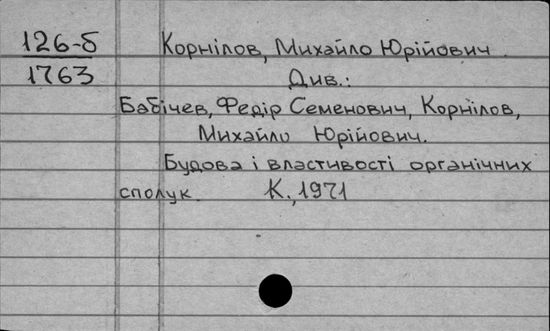 126-б Корнілов, Михайло Юрійович
1763 Див.:
Бабічев, Федір Семенович, Корнілов,
Михайло Юрійович.
Будова і властивості органічних
сполук. К., 1971